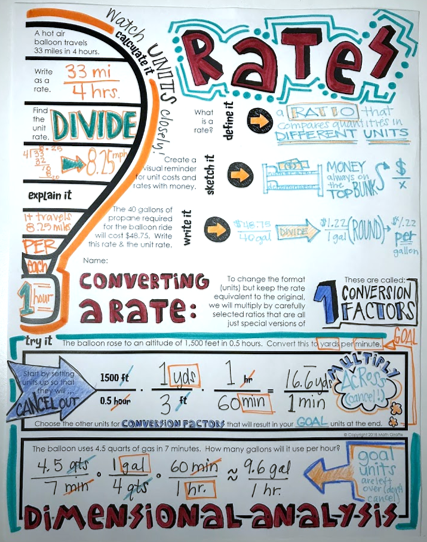 A hot air
balloon travels
33 miles in 4 hours.
Watch UNITS closely!
calculate it
RATES
Write
as a
rate.
33 mi
4 hrs.
Find
the
unit
rate.
DIVIDE
8.25 mph
explain it
it travels
8.25 miles
PER
EACH
1 hour
What
is a
rate?
define it
a RATIO that
compares quantities in
DIFFERENT UNITS
Create a
visual reminder
for unit costs and
rates with money.
sketch it
MONEY
always on
the
TOP BUNK
$
x
The 40 gallons of
propane required
for the balloon ride
will cost $48.75. Write
this rate & the unit rate.
write it
$48.75
40 gal
DIVIDE
$1.22
1 gal
(ROUND)
$1.22
per
gallon
Name:
CONVERTING
A RATE:
To change the format
(units) but keep the rate
equivalent to the original,
we will multiply by carefully
selected ratios that are all
just special versions of
1
These are called:
CONVERSION
FACTORS
try it
The balloon rose to an altitude of 1,500 feet in 0.5 hours. Convert this to yards per minute.
GOAL
Start by setting
units up so that
they will
CANCEL OUT
1500 ft
0.5 hour
1 yds
3 ft
1 hr
60 min
= 16.6 yds
1 min
MULTIPLY
ACROSS
(cancel)
Choose the other units for CONVERSION FACTORS that will result in your GOAL units at the end.
The balloon uses 4.5 quarts of gas in 7 minutes. How many gallons will it use per hour?
4.5 qts
7 min
1 gal
4 qts
60 min
1 hr.
≈ 9.6 gal
1 hr.
goal
units
are left
over (don't
cancel)
DIMENSIONAL ANALYSIS